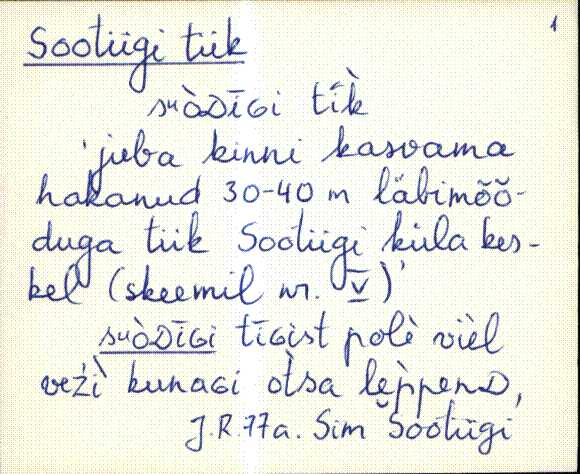 1
Sootiigi tiik
suòᴅīɢi tīk̀
'juba kinni kasvama
hakanud 30-40 m läbimõõ-
duga tiik Sootiigi küla kes-
kel (skeemil nr. V)'
suòᴅīɢi tīɢist polè vièl
veźì kunaɢi òtsa lèppenᴅ,
J.R. 77a. Sim Sootiigi